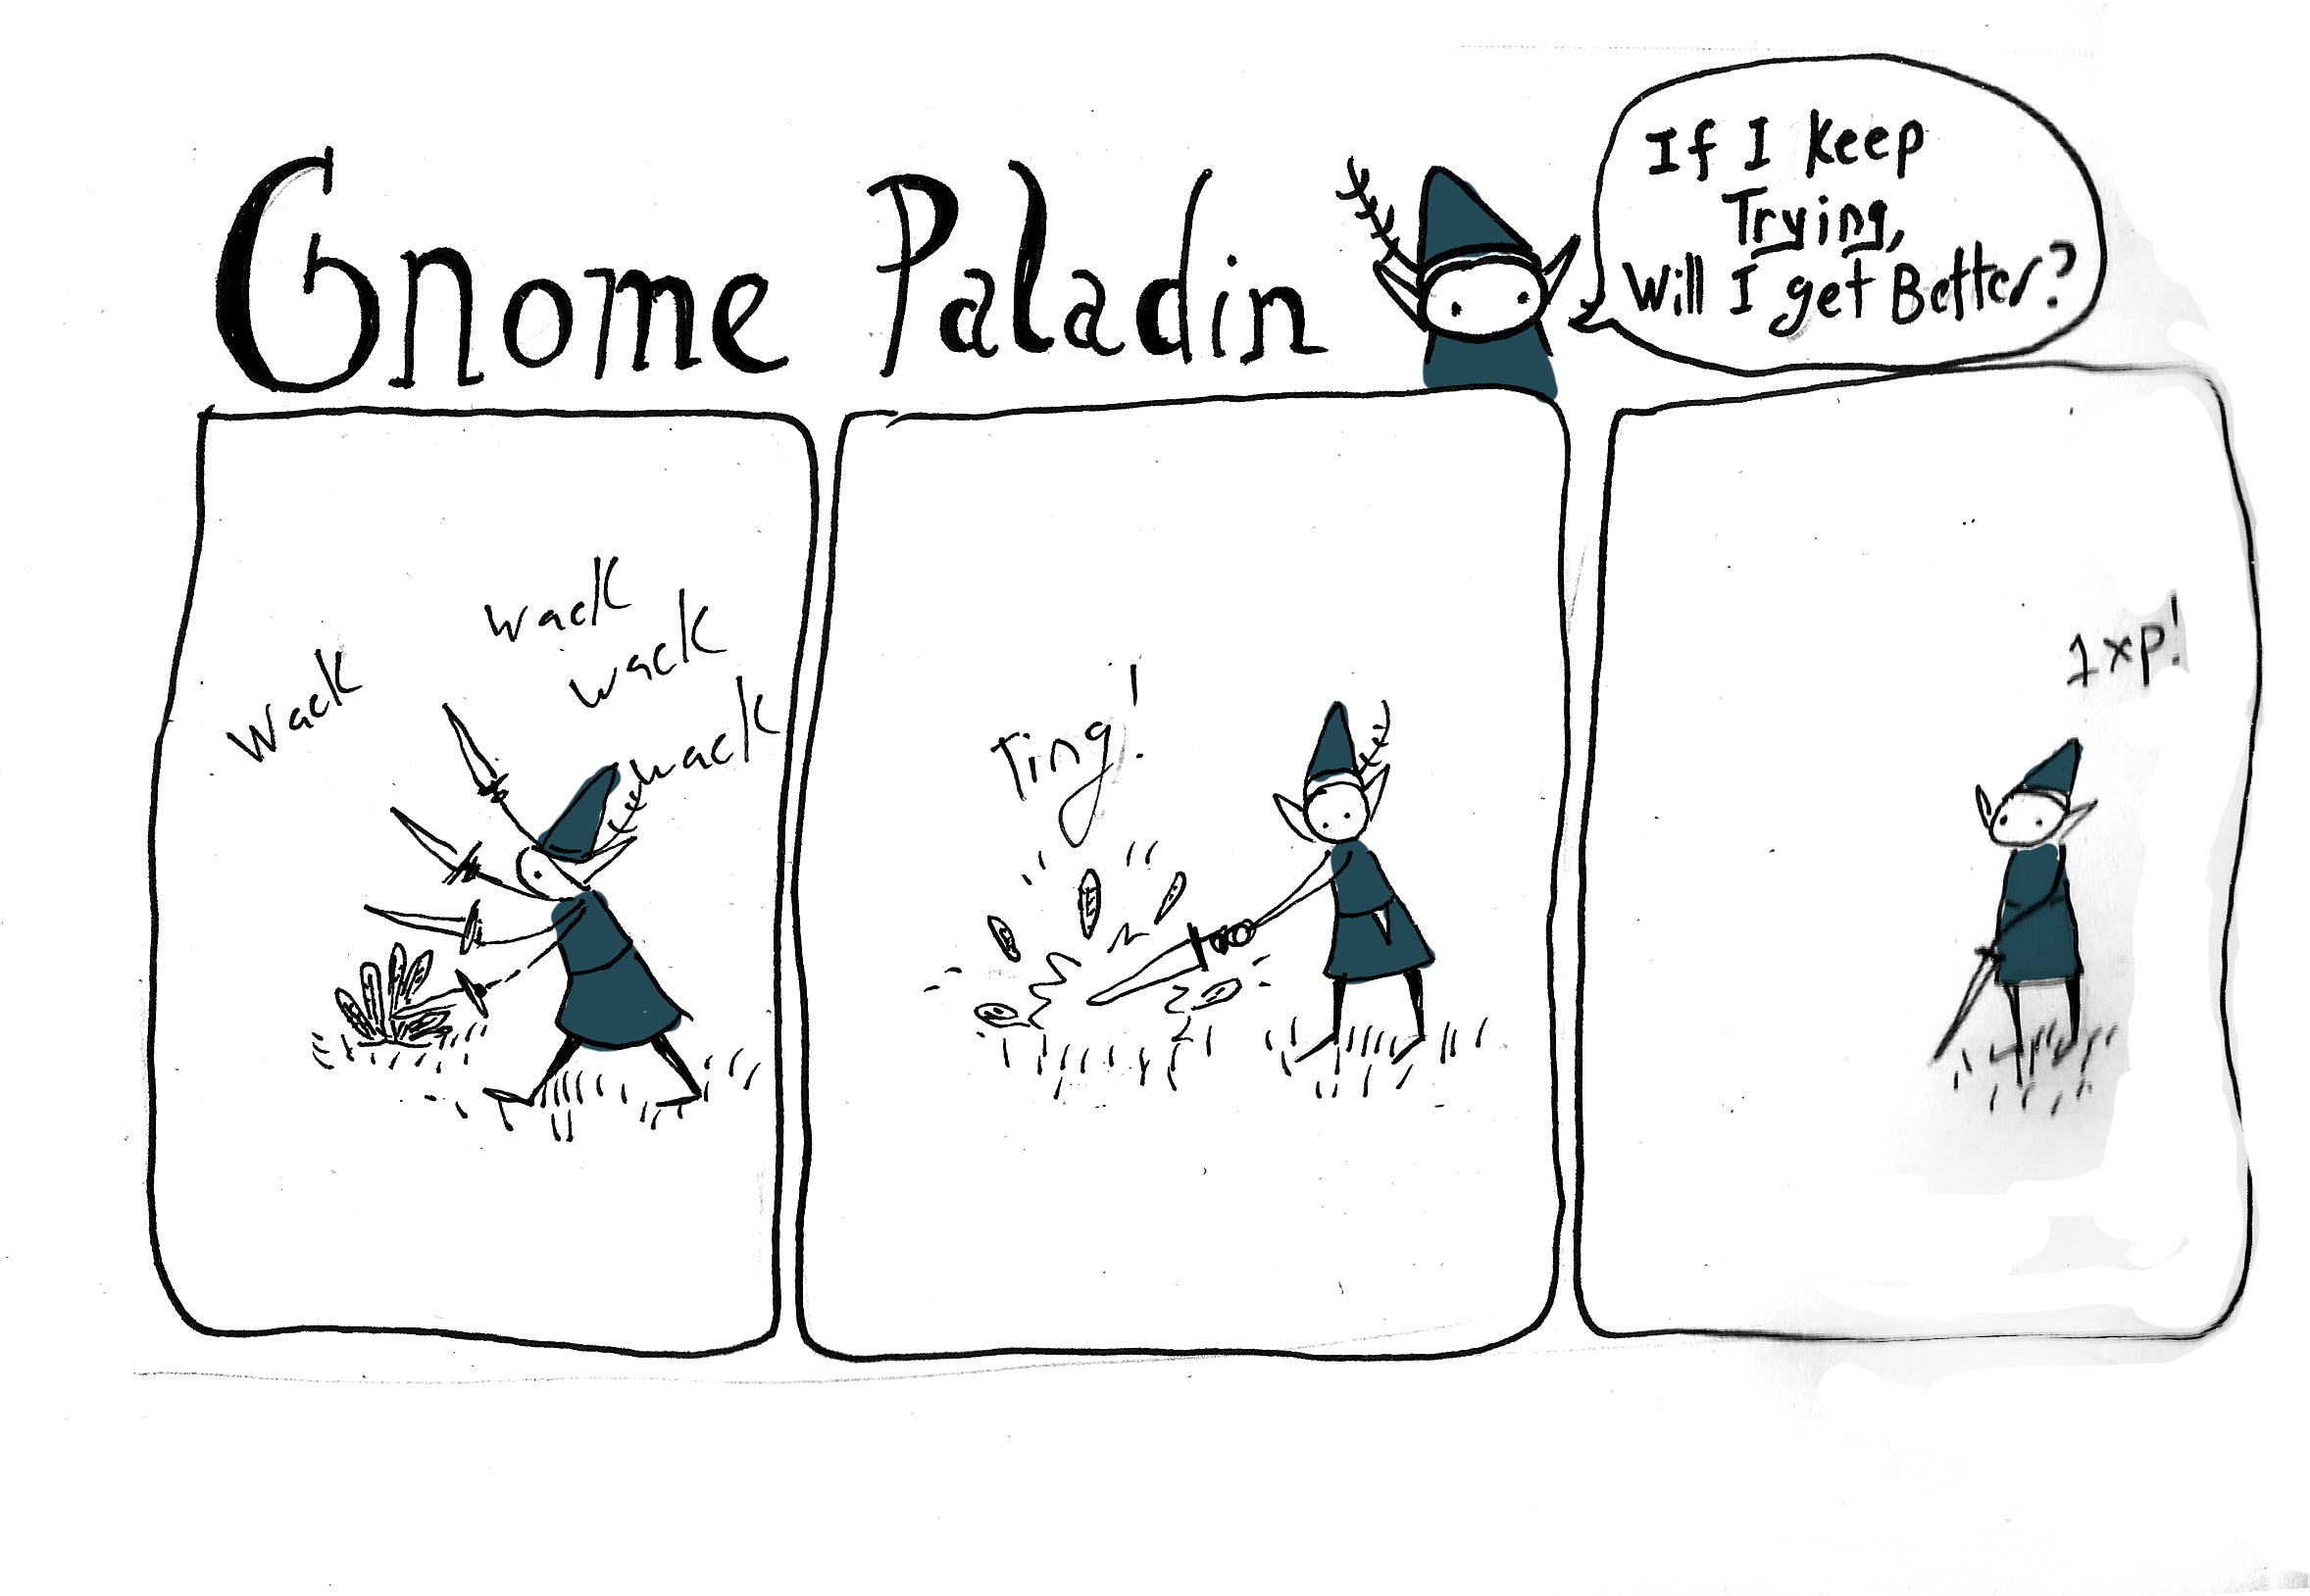 Gnome Paladin
If I keep
Trying,
Will I get Better?
wack
wack
wack
wack
Ting!
1xp!